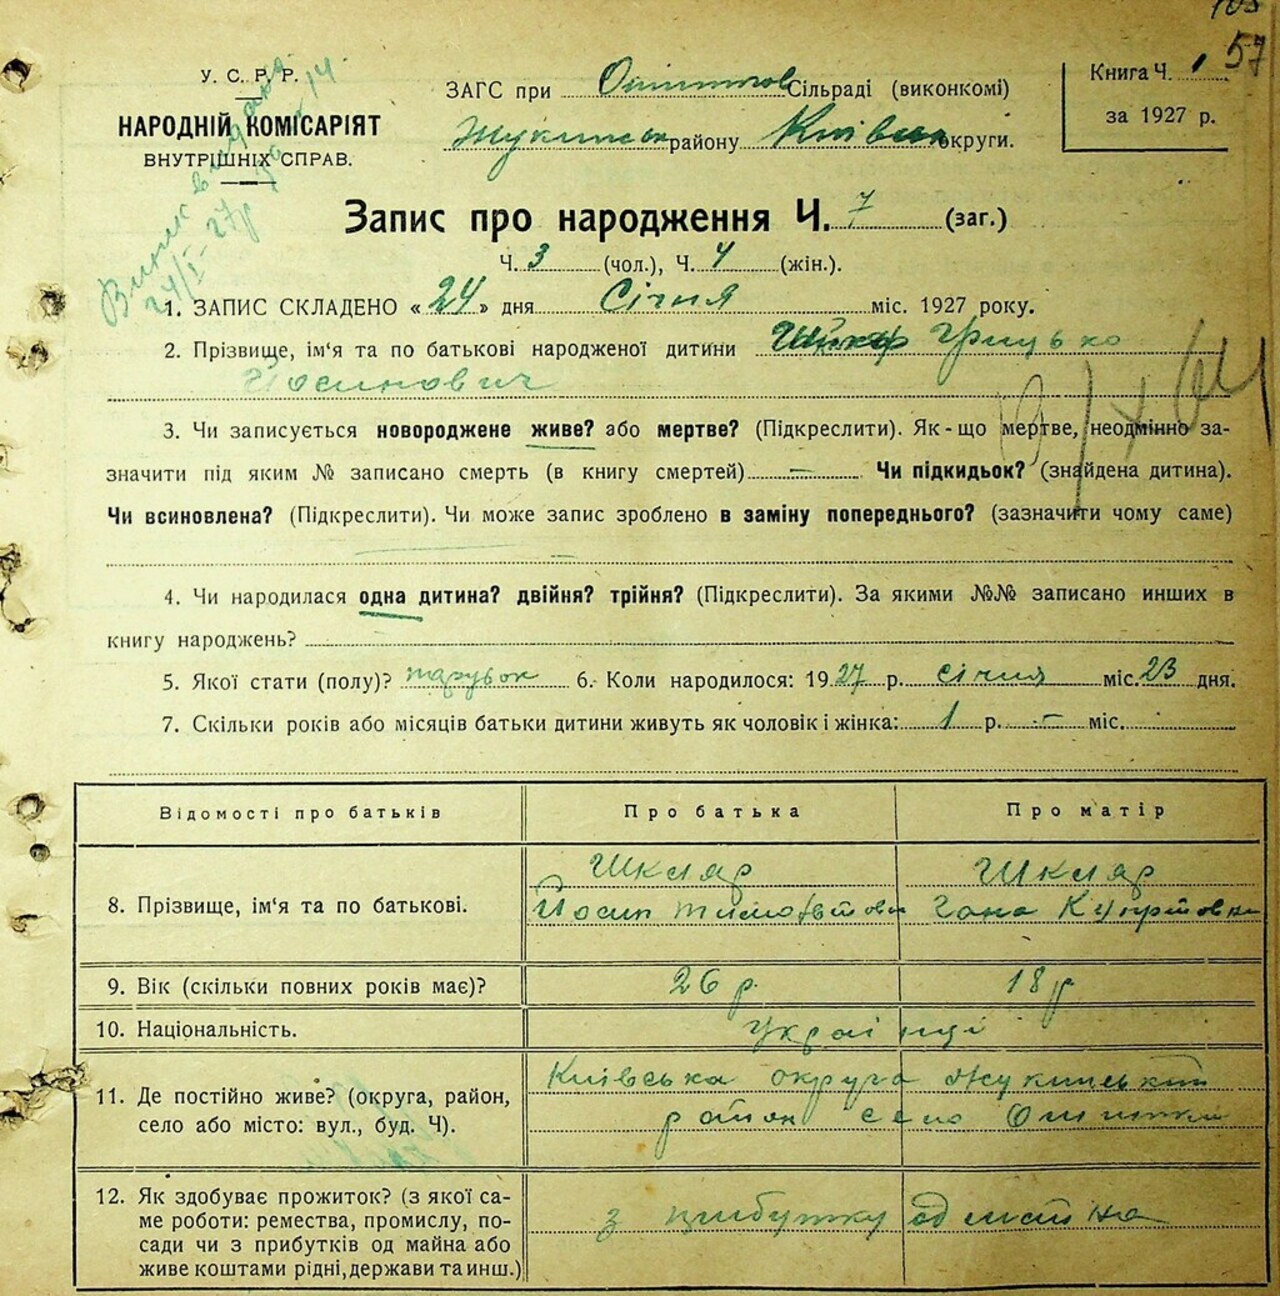 57
У. С. Р. Р.
НАРОДНІЙ КОМІСАРІЯТ
ВНУТРІШНІХ СПРАВ.
ЗАГС при Сільраді (виконкомі)
Жукинськ району Київськ округи.
Книга Ч. 1
за 1927 р.
Запис про народження Ч. 7 (заг.)
Ч. 3 (чол.), Ч. 4 (жін.).
24/I 27р
1. ЗАПИС СКЛАДЕНО « 24 » дня Січня міс. 1927 року.
2. Прізвище, ім'я та по батькові народженої дитини Шкляр Грицько
Йосипович
3. Чи записується новороджене живе? або мертве? (Підкреслити). Як-що мертве, неодмінно за-
значити під яким № записано смерть (в книгу смертей) — Чи підкидьок? (знайдена дитина).
Чи всиновлена? (Підкреслити). Чи може запис зроблено в заміну попереднього? (зазначити чому саме)
4. Чи народилася одна дитина? двійня? трійня? (Підкреслити). За якими №№ записано инших в
книгу народжень?
5. Якої стати (полу)? парубок 6. Коли народилося: 1927 р. січня міс. 23 дня.
7. Скільки років або місяців батьки дитини живуть як чоловік і жінка: 1 р. — міс.
Відомості про батьків Про батька Про матір
8. Прізвище, ім'я та по батькові. Шкляр Шкляр
Йосип Гана
9. Вік (скільки повних років має)? 26 р. 18 р
10. Національність. Українці
11. Де постійно живе? (округа, район, Київська округа Жукинський
село або місто: вул., буд. Ч). район село
12. Як здобуває прожиток? (з якої са-
ме роботи: ремества, промислу, по- з прибутку од майна
сади чи з прибутків од майна або
живе коштами рідні, держави та инш.)